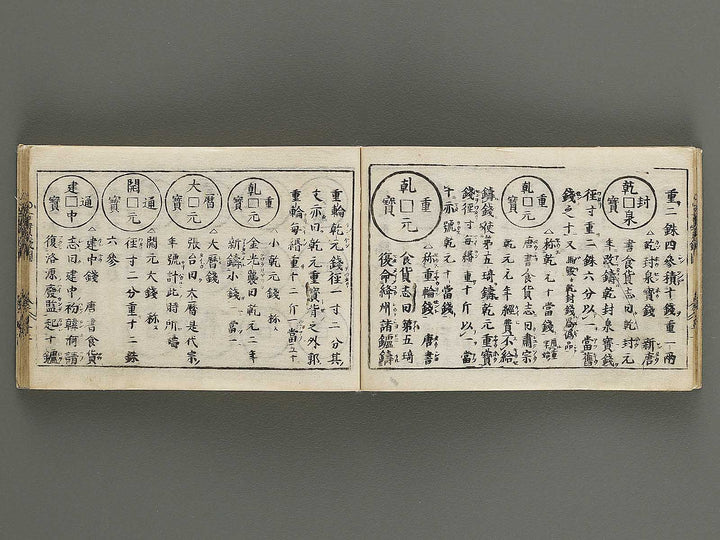 重二銖四參積十錢重一兩
乾封泉寶
乾封泉寶錢 新唐
書食貨志曰乾封元
年改鑄乾封泉寶錢
徑寸重二銖六分以一當舊
錢之十又
乾元重寶
称乾元十當錢
唐書食貨志曰肅宗
乾元元年經費不給
鑄錢使第五琦鑄乾元重寶
錢徑寸每緡重十斤以一當
十亦號乾元十當錢
乾元重寶
称重輪錢 唐書
食貨志曰第五琦
復命絳州諸鑪鑄
重輪乾元錢徑一寸二分其
文亦曰乾元重寶背之外郭
重輪每緡重十二斤
乾元重寶
小乾元錢 称
金光襲曰乾元二年
新鑄小錢 當一
大曆元寶
大曆錢
張台曰大曆是代宗
年號計此時所鑄
開元通寶
開元大錢 称
徑寸二分重十二銖
六參
建中通寶
建中錢 唐書食貨
志曰建中初韓洄請
復洛源廢監起十鑪